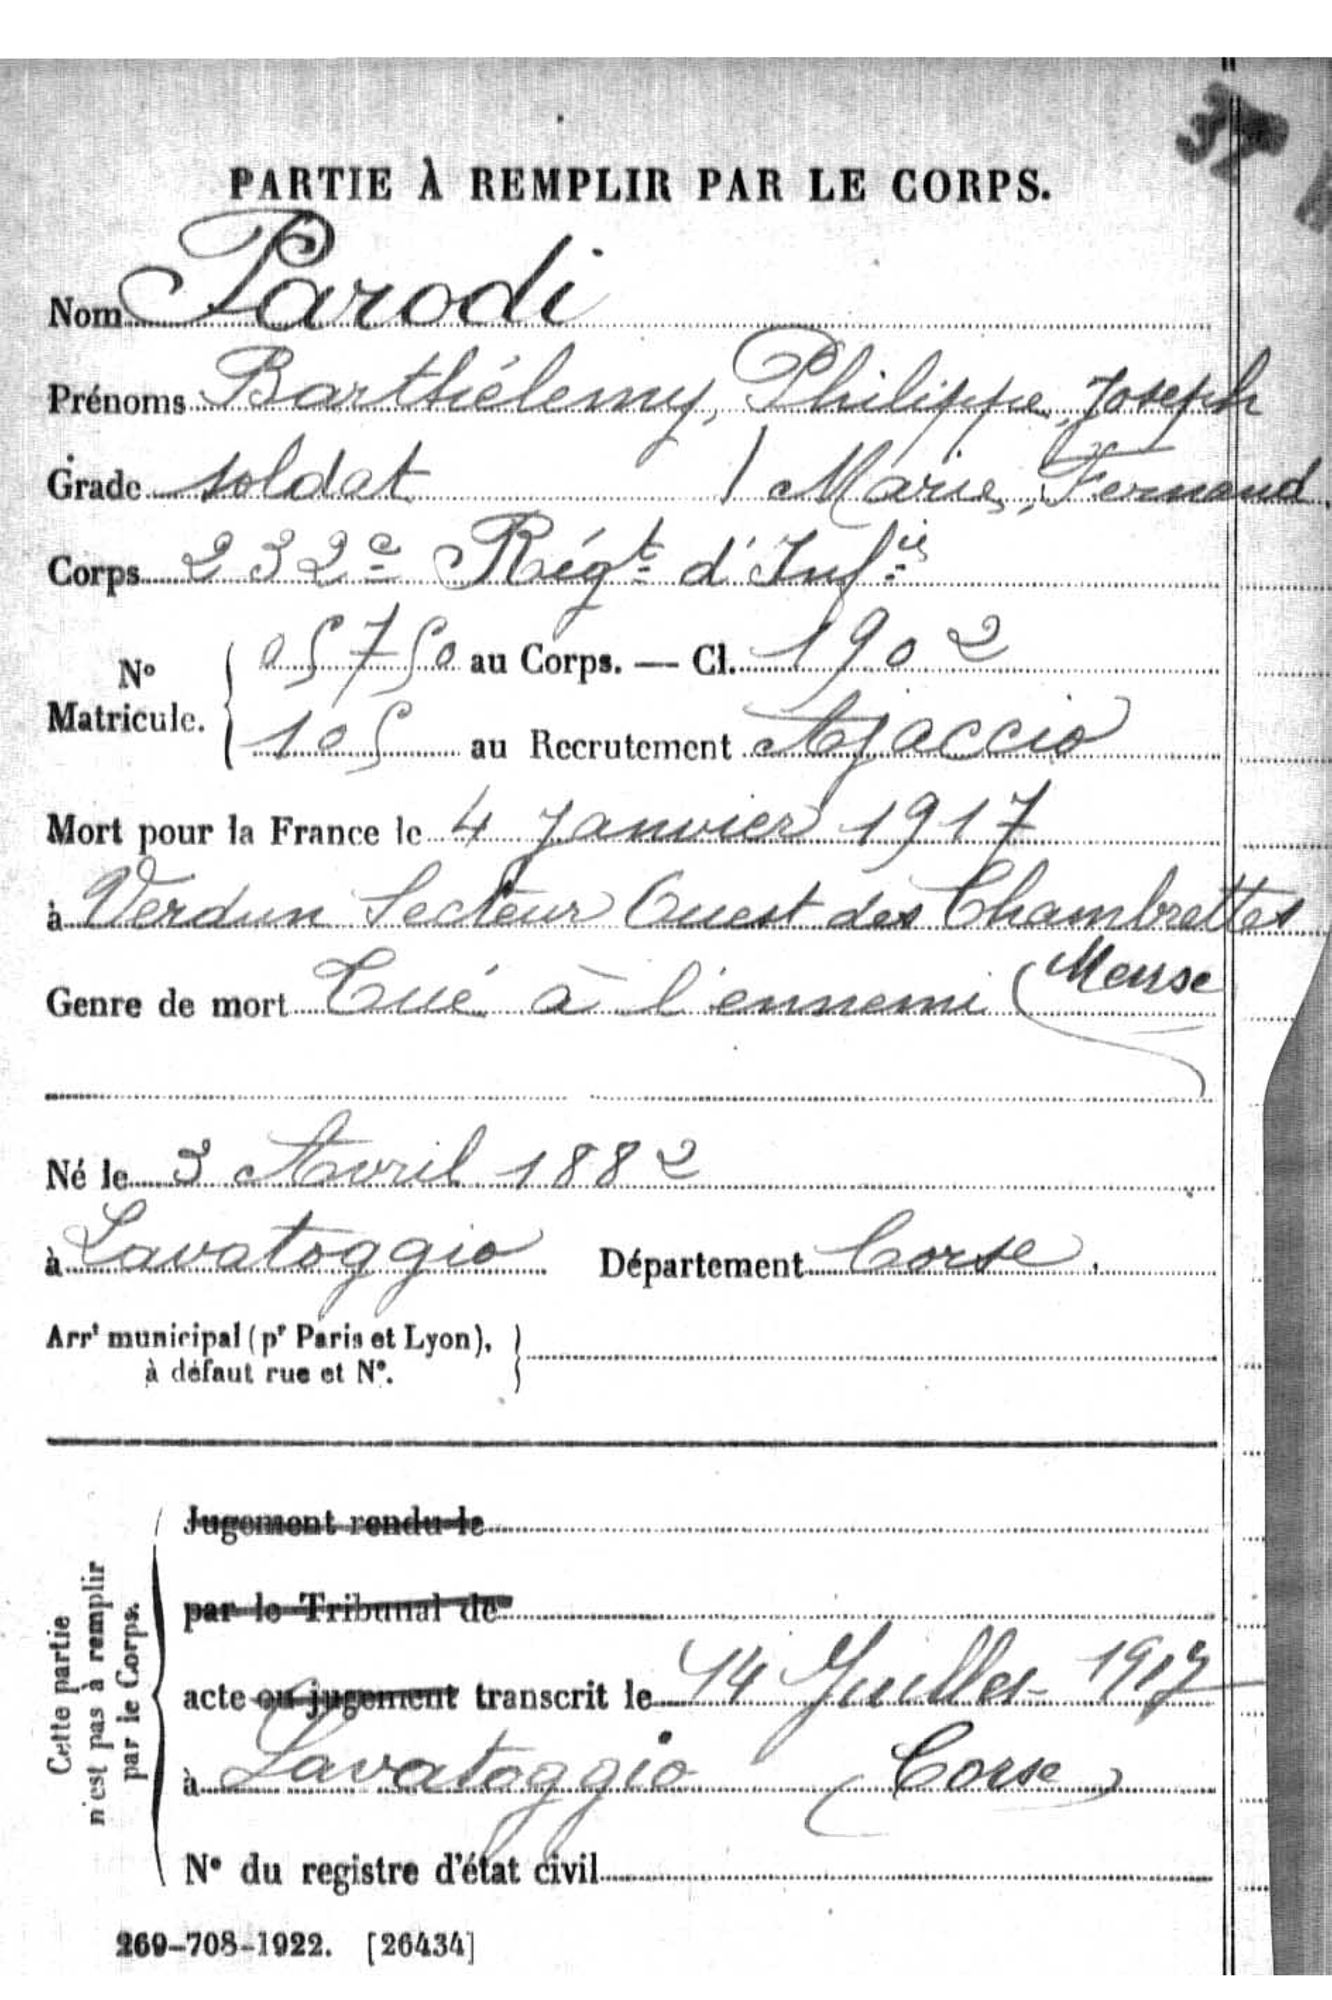 PARTIE À REMPLIR PAR LE CORPS.
Nom Parodi
Prénoms Barthélemy, Philippe, Joseph
Grade soldat / Marie, Fernand,
Corps 232e Régt d'Infie
No Matricule. 05750 au Corps. — Cl. 1902
105 au Recrutement Ajaccio
Mort pour la France le 4 Janvier 1917
à Verdun Secteur Ouest des Chambrettes
Genre de mort Tué à l'ennemi (Meuse
Né le 3 Avril 1882
à Lavatoggio Département Corse.
Arrt municipal (pr Paris et Lyon),
à défaut rue et No.
Cette partie
n'est pas à remplir
par le Corps.
Jugement rendu le
par le Tribunal de
acte ou jugement transcrit le 14 Juillet 1917
à Lavatoggio (Corse)
No du registre d'état civil
269-708-1922. [26434]